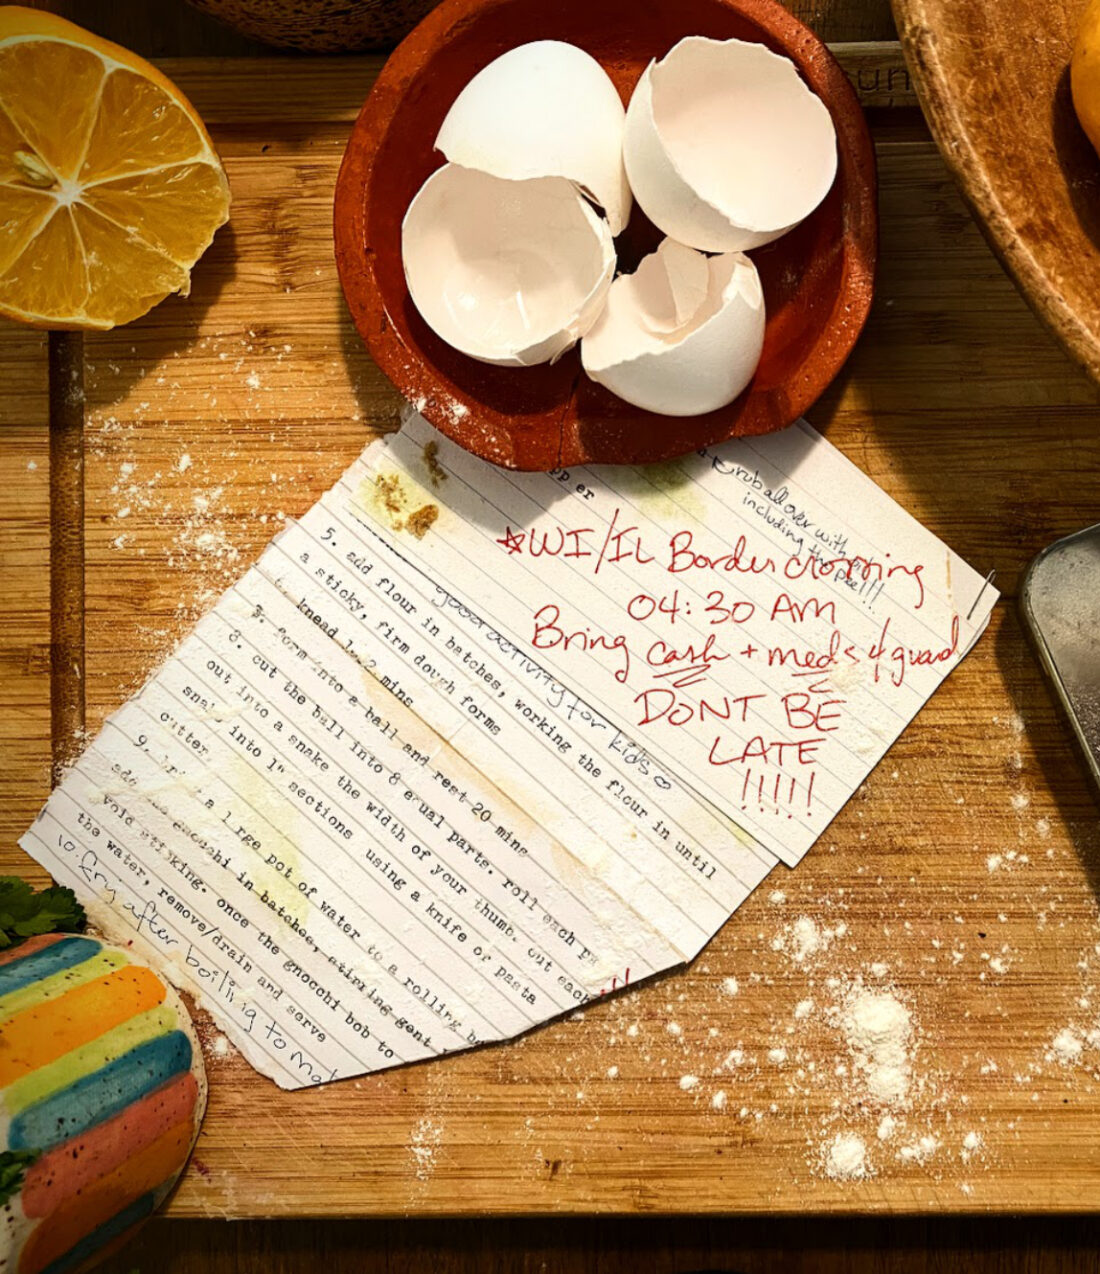 pp er
rub all over with
including the peel!!!
☆WI/IL Border crossing
04:30 AM
Bring cash + meds 4 guard
DONT BE
LATE
!!!!!
good activity for kids ♡
5. add flour in batches, working the flour in until
a sticky, firm dough forms
knead mins
form into a ball and rest 20 mins
8. cut the ball into 8 equal parts. roll each
out into a snake the width of your thumb. cut each
into 1" sections using a knife or pasta
cutter.
9. a large pot of water to a rolling
gnocchi in batches, stirring gent
sticking. once the gnocchi bob to
the water, remove/drain and serve
10. fry after boiling to